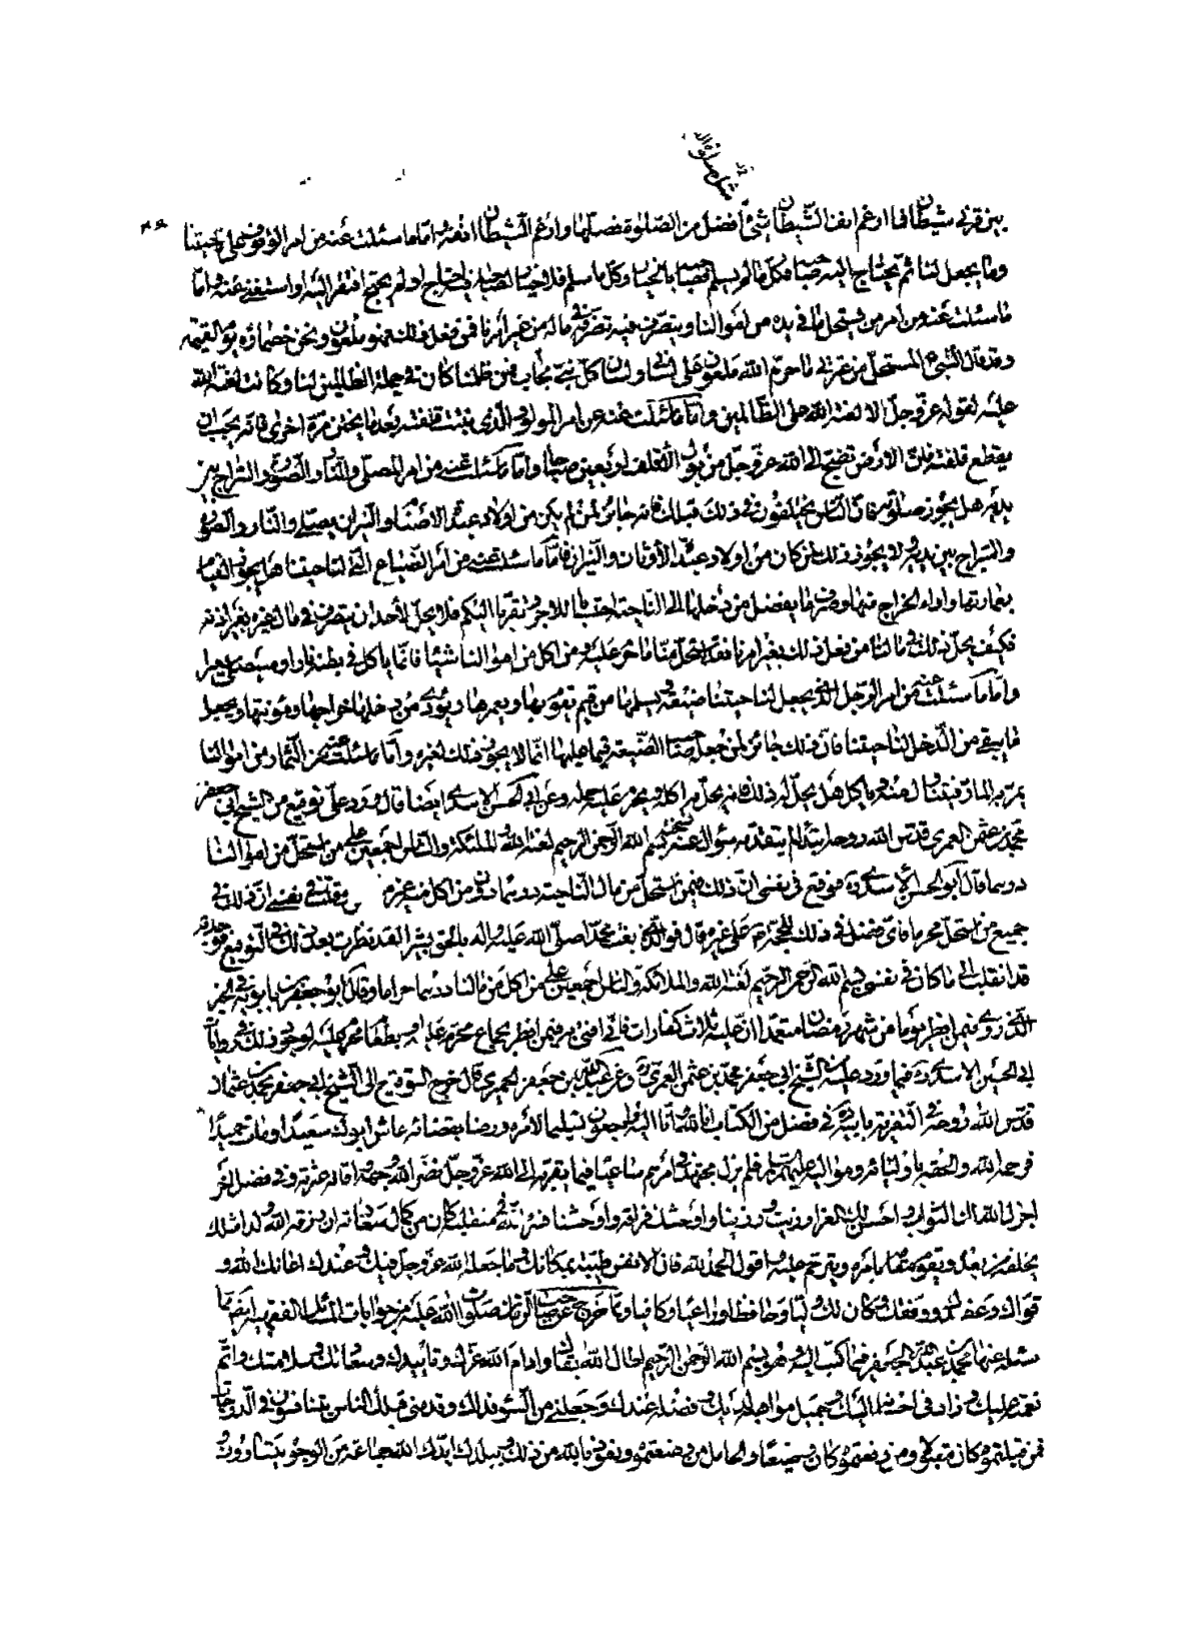 مثل صلوة
بين قرني شيطان فما ارغم انف الشيطان شئ افضل من الصلوة فصلها وارغم الشيطان انفه واما ما سئلت عنه من امر الوقوف على ناحيتنا
وما يجعل لنا ثم يحتاج اليه صاحبه فكل ما لم يسلم فصاحبه بالخيار وكل ما سلم فلا خيار لصاحبه فيه احتاج او لم يحتج افتقر اليه او استغنى عنه واما
ما سئلت عنه من امر من يستحل ما في يده من اموالنا ويتصرف فيه تصرفه في ماله من غير امرنا فمن فعل ذلك فهو ملعون ونحن خصماؤه يوم القيمة
وقد قال النبي المستحل من عترتي ما حرم الله ملعون على لساني ولسان كل نبي مجاب فمن ظلمنا كان في جملة الظالمين لنا وكانت لعنة الله
عليه لقوله عز وجل الا لعنة الله على الظالمين واما ما سئلت عنه عن امر المولود الذي نبتت قلفته بعد ما يختن مرة اخرى فانه يجب ان
يقطع قلفته فان الارض تضج الى الله عز وجل من بول الاقلف اربعين صباحا واما ما سئلت عنه من امر المصلي والنار والصورة والسراج بين
يديه هل يجوز صلوته فان الناس يختلفون في ذلك قبلك فانه جائز لمن لم يكن من اولاد عبدة الاصنام والنيران يصلي والنار والصورة
والسراج بين يديه ولا يجوز ذلك لمن كان من اولاد عبدة الاوثان والنيران فاما ما سئلت عنه من امر الضياع التي لناحيتنا هل يجوز القيام
بعمارتها واداء الخراج منها وصرف ما يفضل من دخلها الى الناحية احتسابا للاجر وتقربا اليكم فلا يحل لاحد ان يتصرف في مال غيره بغير اذنه
فكيف يحل ذلك في مالنا من فعل ذلك بغير امرنا فقد استحل منا ما حرم عليه ومن اكل من اموالنا شيئا فانما ياكل في بطنه نارا وسيصلى سعيرا
واما ما سئلت عنه من امر الرجل الذي يجعل لناحيتنا ضيعة ويسلمها من قيم يقوم بها ويعمرها ويؤدي من دخلها خراجها ومؤنتها ويجعل
ما يبقى من الدخل لناحيتنا فان ذلك جائز لمن جعله صاحب الضيعة قيما عليها انما لا يجوز ذلك لغيره واما ما سئلت عنه من الثمار من اموالنا
يمر به المار فيتناول منه وياكل هل يحل له ذلك فانه يحل له اكله ويحرم عليه حمله وعن ابي الحسن الاسدي ايضا قال ورد علي توقيع من الشيخ ابي جعفر
محمد بن عثمن العمري قدس الله روحه ابتداء لم يتقدمه سؤال عنه نسخته بسم الله الرحمن الرحيم لعنة الله والملئكة والناس اجمعين على من استحل من اموالنا
درهما قال ابو الحسن الاسدي فوقع في نفسي ان ذلك فيمن استحل من مال الناحية درهما دون من اكل منه غيره وقلت في نفسي ان ذلك في
جميع من استحل محرما فاي فضل في ذلك للحجة على غيره قال فوالذي بعث محمدا صلى الله عليه واله بالحق بشيرا لقد نظرت بعد ذلك في التوقيع فوجدته
قد انقلب الى ما كان في نفسي بسم الله الرحمن الرحيم لعنة الله والملائكة والناس اجمعين على من اكل من مالنا درهما حراما وقال ابو جعفر بن بابويه في الخبر
الذي روي فيمن افطر يوما من شهر رمضان متعمدا ان عليه ثلاث كفارات فاني افتي به فيمن افطر بجماع محرم عليه او بطعام محرم عليه لوجود ذلك في روايات
ابي الحسين الاسدي فيما ورد عليه من الشيخ ابي جعفر محمد بن عثمن العمري وعن عبد الله بن جعفر الحميري قال خرج التوقيع الى الشيخ ابي جعفر محمد بن عثمان
قدس الله روحه في التعزية بابيه في فصل من الكتاب انا لله وانا اليه راجعون تسليما لامره ورضا بقضائه عاش ابوك سعيدا ومات حميدا
فرحمه الله والحقه باوليائه ومواليه عليهم السلام فلم يزل مجتهدا في امرهم ساعيا فيما يقربه الى الله عز وجل نضر الله وجهه واقاله عثرته وفي فصل اخر
اجزل الله لك الثواب واحسن لك العزا رزيت ورزينا واوحشك فراقه واوحشنا فسره الله في منقلبه كان من كمال سعادته ان رزقه الله ولدا مثلك
يخلفه من بعده ويقوم مقامه بامره ويترحم عليه واقول الحمد لله فان الانفس طيبة بمكانك وما جعله الله عز وجل فيك وعندك اعانك الله و
قواك وعضدك ووفقك وكان لك وليا وحافظا وراعيا وكافيا ومما خرج عن صاحب الزمان صلوات الله عليه من جوابات المسائل الفقهية ايضا مما
سئله عنها محمد بن عبد الله الحميري فيما كتب اليه وهو بسم الله الرحمن الرحيم اطال الله بقاك وادام الله عزك وتاييدك وسعادتك وسلامتك واتم
نعمته عليك وزاد في احسانه اليك وجميل مواهبه لديك وفضله عندك وجعلني من السوء فداك وقدمني قبلك الناس يتنافسون في الدرجات
فمن قبلتموه كان مقبولا ومن دفعتموه كان وضيعا والخامل من وضعتموه ونعوذ بالله من ذلك وببلدك ايدك الله جماعة من الوجوه يتساوون